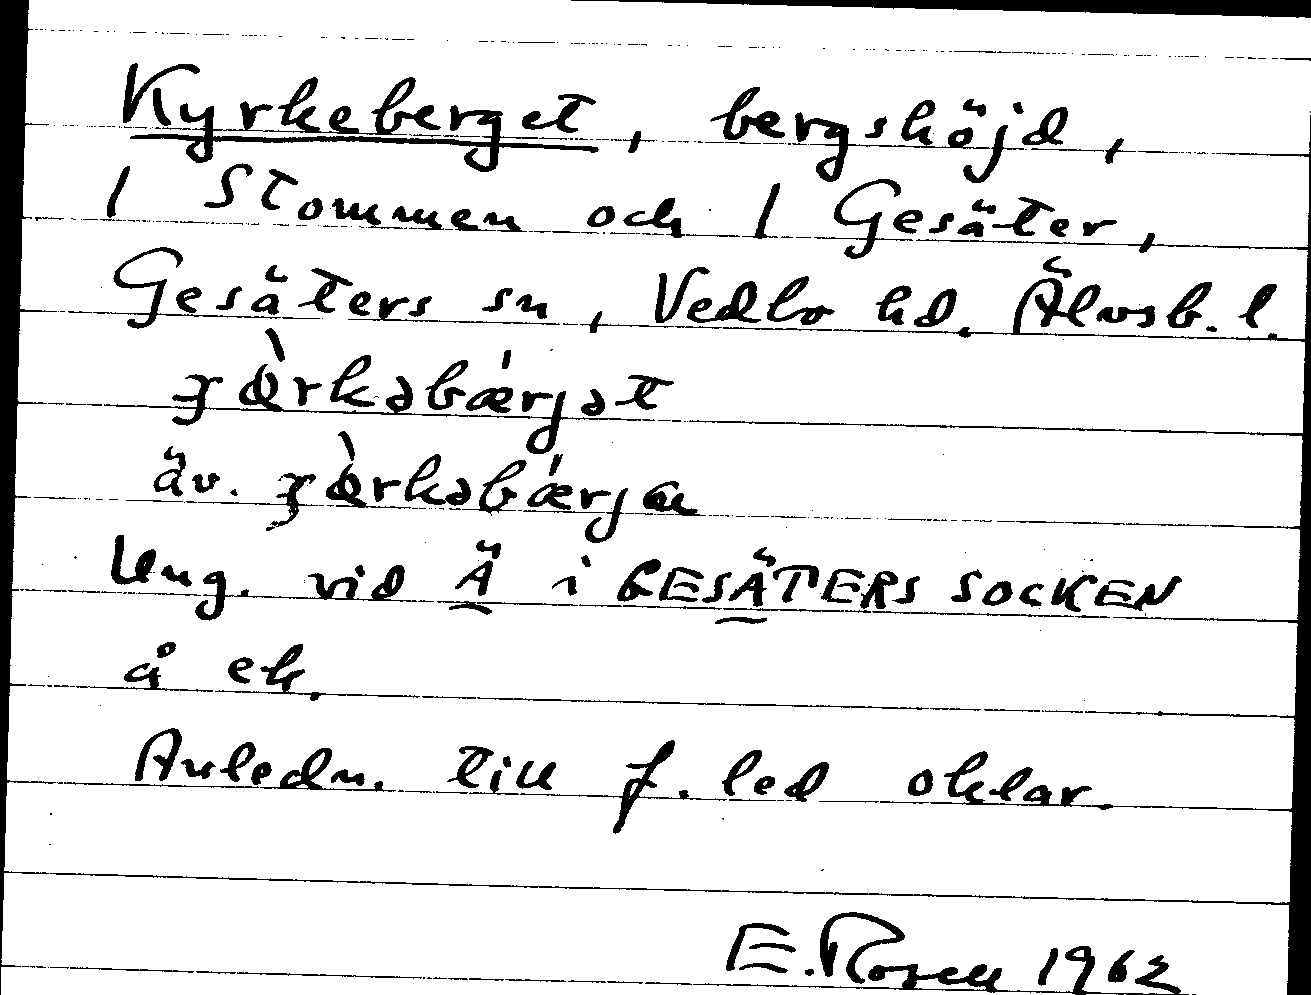 Kyrkeberget, bergshöjd,
1 Stommen och 1 Gesäter,
Gesäters sn, Vedbo hd. Älvsb. l.
ʒɵ̀rkəbǽrjət
äv. ʒɵ̀rkəbǽrja
Ung. vid Ä i GESÄTERS SOCKEN
å ek.
Anledn. till f. led oklar.
E. Rosell 1962